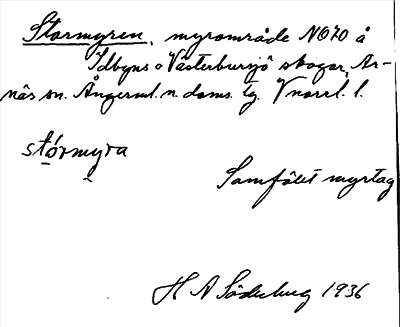 Stormyren, myrområde NOtO å
Idbyns o Västerbursjö skogar, Ar-
näs sn. Ångerml. n. doms. lg. Vnorrl. l.
stórmyra
Samfällt myrtag
H A Söderberg 1936